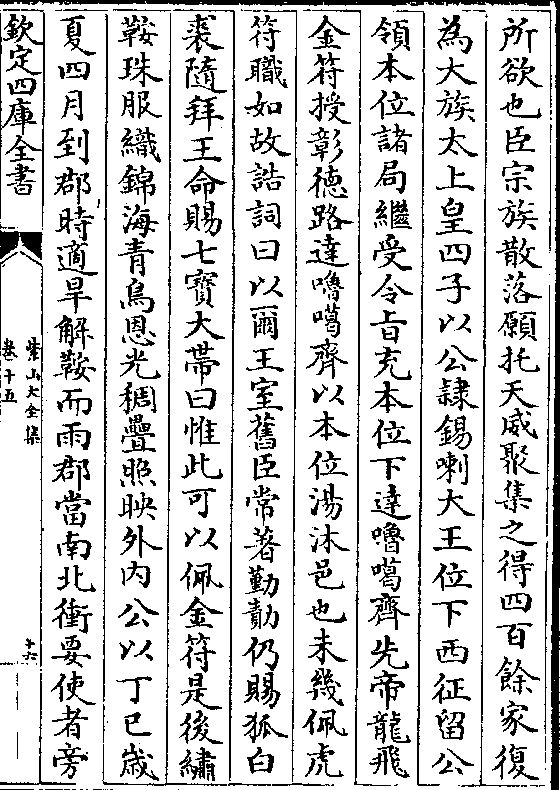 所欲也臣宗族散落願托天威聚集之得四百餘家復
為大族太上皇四子以公隸錫喇大王位下西征留公
領本位諸局繼受令㫖充本位下達嚕噶齊先帝龍飛
金符授彰德路達嚕噶齊以本位湯沐邑也未幾佩虎
符職如故誥詞曰以爾王室舊臣常著勤勣仍賜狐白
裘隨拜王命賜七寶大帶曰惟此可以佩金符是後繡
鞍珠服織錦海青鳥恩光稠疊照映外内公以丁巳歲
夏四月到郡時適旱解鞍而雨郡當南北衝要使者旁
欽定四庫全書
紫山大全集
卷十五
十六